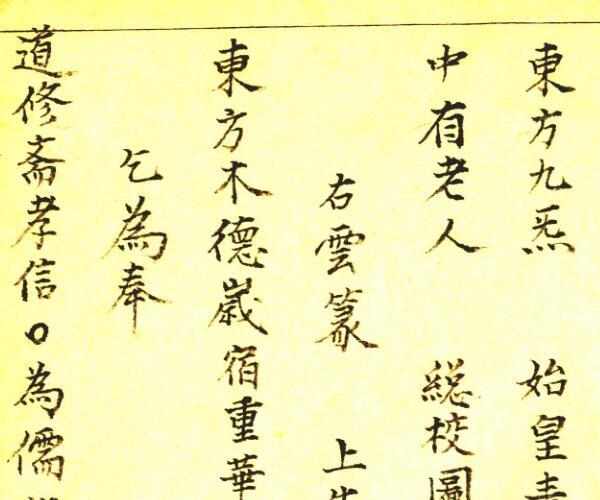 東方九炁 始皇青
中有老人 総校圖
右雲篆 上
東方木德歲宿重華
乞為奉
道修斋孝信〇為儒